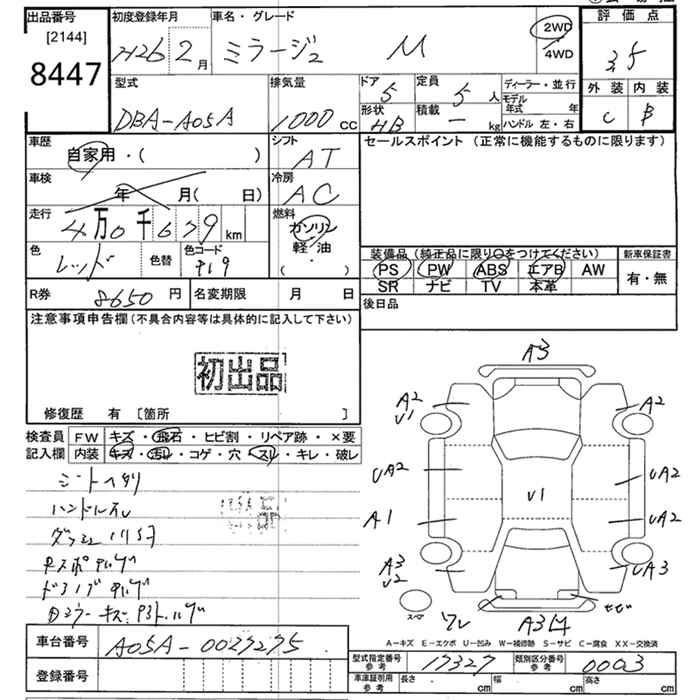 出品番号 初度登録年月 車名・グレード 評価点
[2144] H26 2月 ミラージュ M 2WD 4WD 3.5
8447
外装 内装
C B
型式 排気量 ドア 5 定員 5人 ディーラー・並行
DBA-A05A 1000cc 形状 HB 積載 — kg モデル年式 年
ハンドル 左・右
車歴 シフト セールスポイント (正常に機能するものに限ります)
自家用・( ) AT
車検 年 月( 日) 冷房 AC
走行 4万0千679km 燃料 ガソリン・軽油・( )
色 レッド 色替 色コード P19
装備品(純正品に限り○をつけてください) 新車保証書
PS PW ABS エアB AW 有・無
SR ナビ TV 本革
R券 8650円 名変期限 月 日 後日品
注意事項申告欄(不具合内容等は具体的に記入して下さい)
初出品
修復歴 有 [箇所 ]
検査員 FW キズ・飛石・ヒビ割・リペア跡・×要
記入欄 内装 キズ・汚レ・コゲ・穴・スレ・キレ・破レ
シートヘタリ
ハンドルスレ
A3
A2 U1
A2
UA2
UA2
U1
A1
UA2
A3 U2
UA3
スペア
ワレ
A3
A-キズ E-エクボ U-凹み W-補修跡 S-サビ C-腐食 XX-交換済
車台番号 A05A-0027275
登録番号
型式指定番号 参考 17327 類別区分番号 参考 0003
車庫証明用 参考 長さ cm 幅 cm 高さ cm